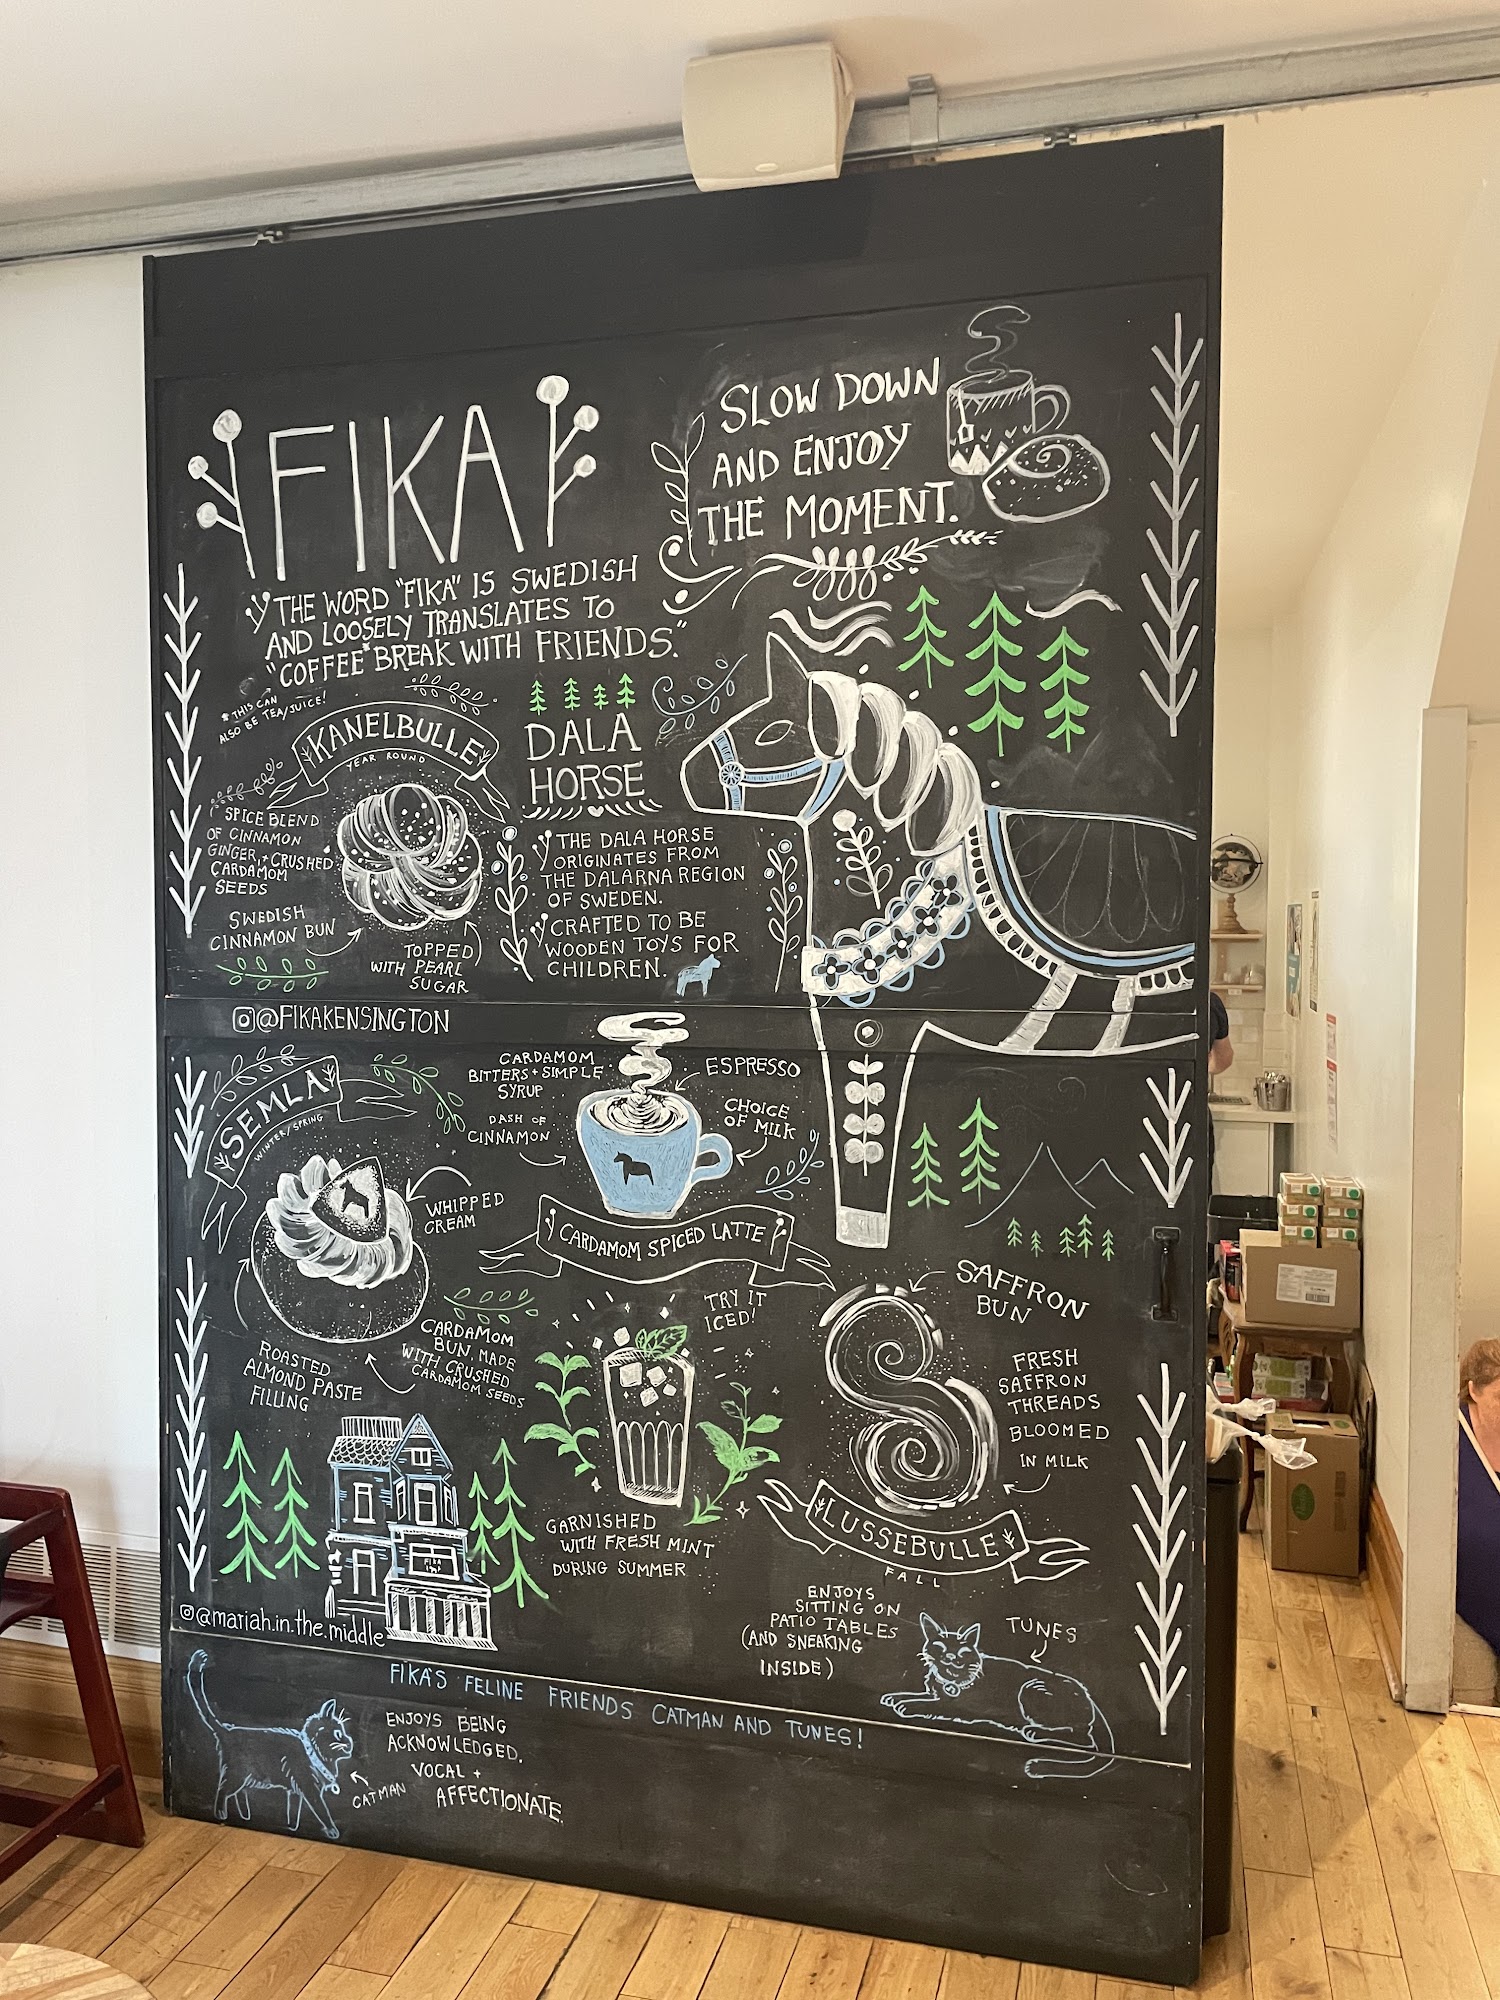 FIKA
SLOW DOWN
AND ENJOY
THE MOMENT.
THE WORD "FIKA" IS SWEDISH
AND LOOSELY TRANSLATES TO
"COFFEE* BREAK WITH FRIENDS."
*THIS CAN
ALSO BE TEA/JUICE!
KANELBULLE
YEAR ROUND
SPICE BLEND
OF CINNAMON
GINGER, + CRUSHED
CARDAMOM
SEEDS
SWEDISH
CINNAMON BUN
TOPPED
WITH PEARL
SUGAR
DALA
HORSE
THE DALA HORSE
ORIGINATES FROM
THE DALARNA REGION
OF SWEDEN.
CRAFTED TO BE
WOODEN TOYS FOR
CHILDREN.
@FIKAKENSINGTON
SEMLA
WINTER/SPRING
WHIPPED
CREAM
CARDAMOM
BUN MADE
WITH CRUSHED
CARDAMOM SEEDS
ROASTED
ALMOND PASTE
FILLING
CARDAMOM
BITTERS + SIMPLE
SYRUP
ESPRESSO
DASH OF
CINNAMON
CHOICE
OF MILK
CARDAMOM SPICED LATTE
TRY IT
ICED!
GARNISHED
WITH FRESH MINT
DURING SUMMER
SAFFRON
BUN
FRESH
SAFFRON
THREADS
BLOOMED
IN MILK
LUSSEBULLE
FALL
FIKA
@mariah.in.the.middle
ENJOYS
SITTING ON
PATIO TABLES
(AND SNEAKING
INSIDE)
TUNES
FIKA'S FELINE FRIENDS CATMAN AND TUNES!
ENJOYS BEING
ACKNOWLEDGED.
VOCAL +
AFFECTIONATE.
CATMAN